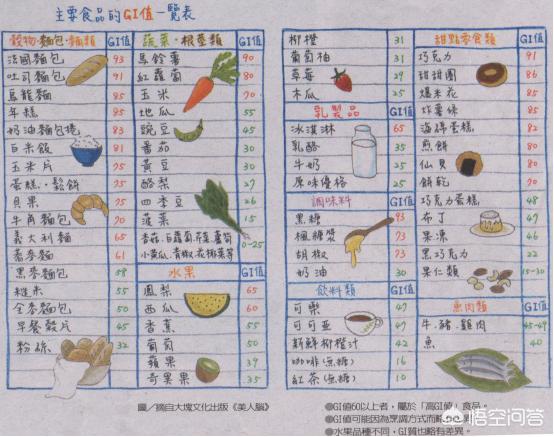 主要食品的GI值一覽表
穀物·麵包·麵類 GI值
法國麵包 93
吐司麵包 91
烏龍麵 85
年糕 85
奶油麵包捲 83
白米飯 81
玉米片 75
蛋糕·鬆餅 75
貝果 75
牛角麵包 70
義大利麵 65
蕎麥麵 61
黑麥麵包 58
糙米 55
全麥麵包 50
早餐穀片 45
粉絲 32
蔬菜·根莖類 GI值
馬鈴薯 90
紅蘿蔔 80
玉米 70
地瓜 55
豌豆 45
番茄 30
黃豆 30
酪梨 27
四季豆 26
菠菜 15
香菇、白蘿蔔、芹菜、蘆筍
小黃瓜、青椒、花椰菜等 0-25
水果 GI值
鳳梨 65
西瓜 60
香蕉 55
葡萄 50
蘋果 39
奇異果 35
柳橙 31
葡萄柚 31
草莓 29
木瓜 25
乳製品 GI值
冰淇淋 65
乳酪 35
牛奶 25
原味優格 25
調味料 GI值
黑糖 93
楓糖漿 73
胡椒 73
奶油 30
飲料類 GI值
可樂 47
可可亞 47
新鮮柳橙汁 42
咖啡(無糖) 16
紅茶(無糖) 10
甜點零食類 GI值
巧克力 91
甜甜圈 86
爆米花 85
炸薯條 85
海綿蛋糕 82
煎餅 80
仙貝 80
餅乾 70
巧克力蛋糕 48
布丁 47
果凍 46
黑巧克力 22
果仁類 15-30
魚肉類 GI值
牛·豬·雞肉 45-49
魚 40
圖/摘自大塊文化出版《美人腦》
●GI值60以上者,屬於「高GI值」食品。
●GI值可能因為烹調方式而略有差異。
●水果品種不同,GI質也略有差異。
悟空问答